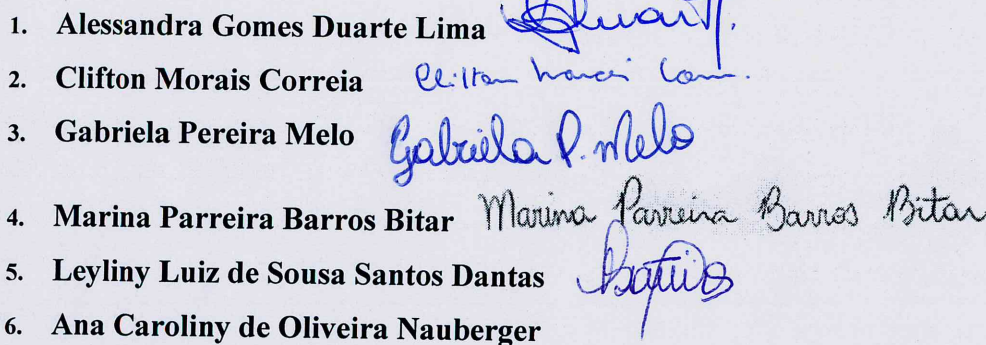 1. Alessandra Gomes Duarte Lima Duarte
2. Clifton Morais Correia Clifton Morais
3. Gabriela Pereira Melo Gabriela P. Melo
4. Marina Parreira Barros Bitar Marina Parreira Barros Bitar
5. Leyliny Luiz de Sousa Santos Dantas
6. Ana Caroliny de Oliveira Nauberger